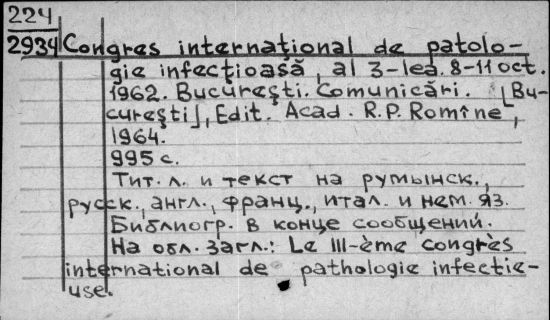 224
2934 Congres internaţional de patolo-
gie infecţioasă, al 3-lea. 8-11 oct.
1962. Bucureşti. Comunicări. [Bu-
cureşti], Edit. Acad. R.P. Romîne,
1964.
995 с.
Тит. л. и текст на румынск.,
русск., англ., франц., итал. и нем. яз.
Библиогр. в конце сообщений.
На обл. загл.: Le III-ème congrès
international de pathologie infectie-
use.